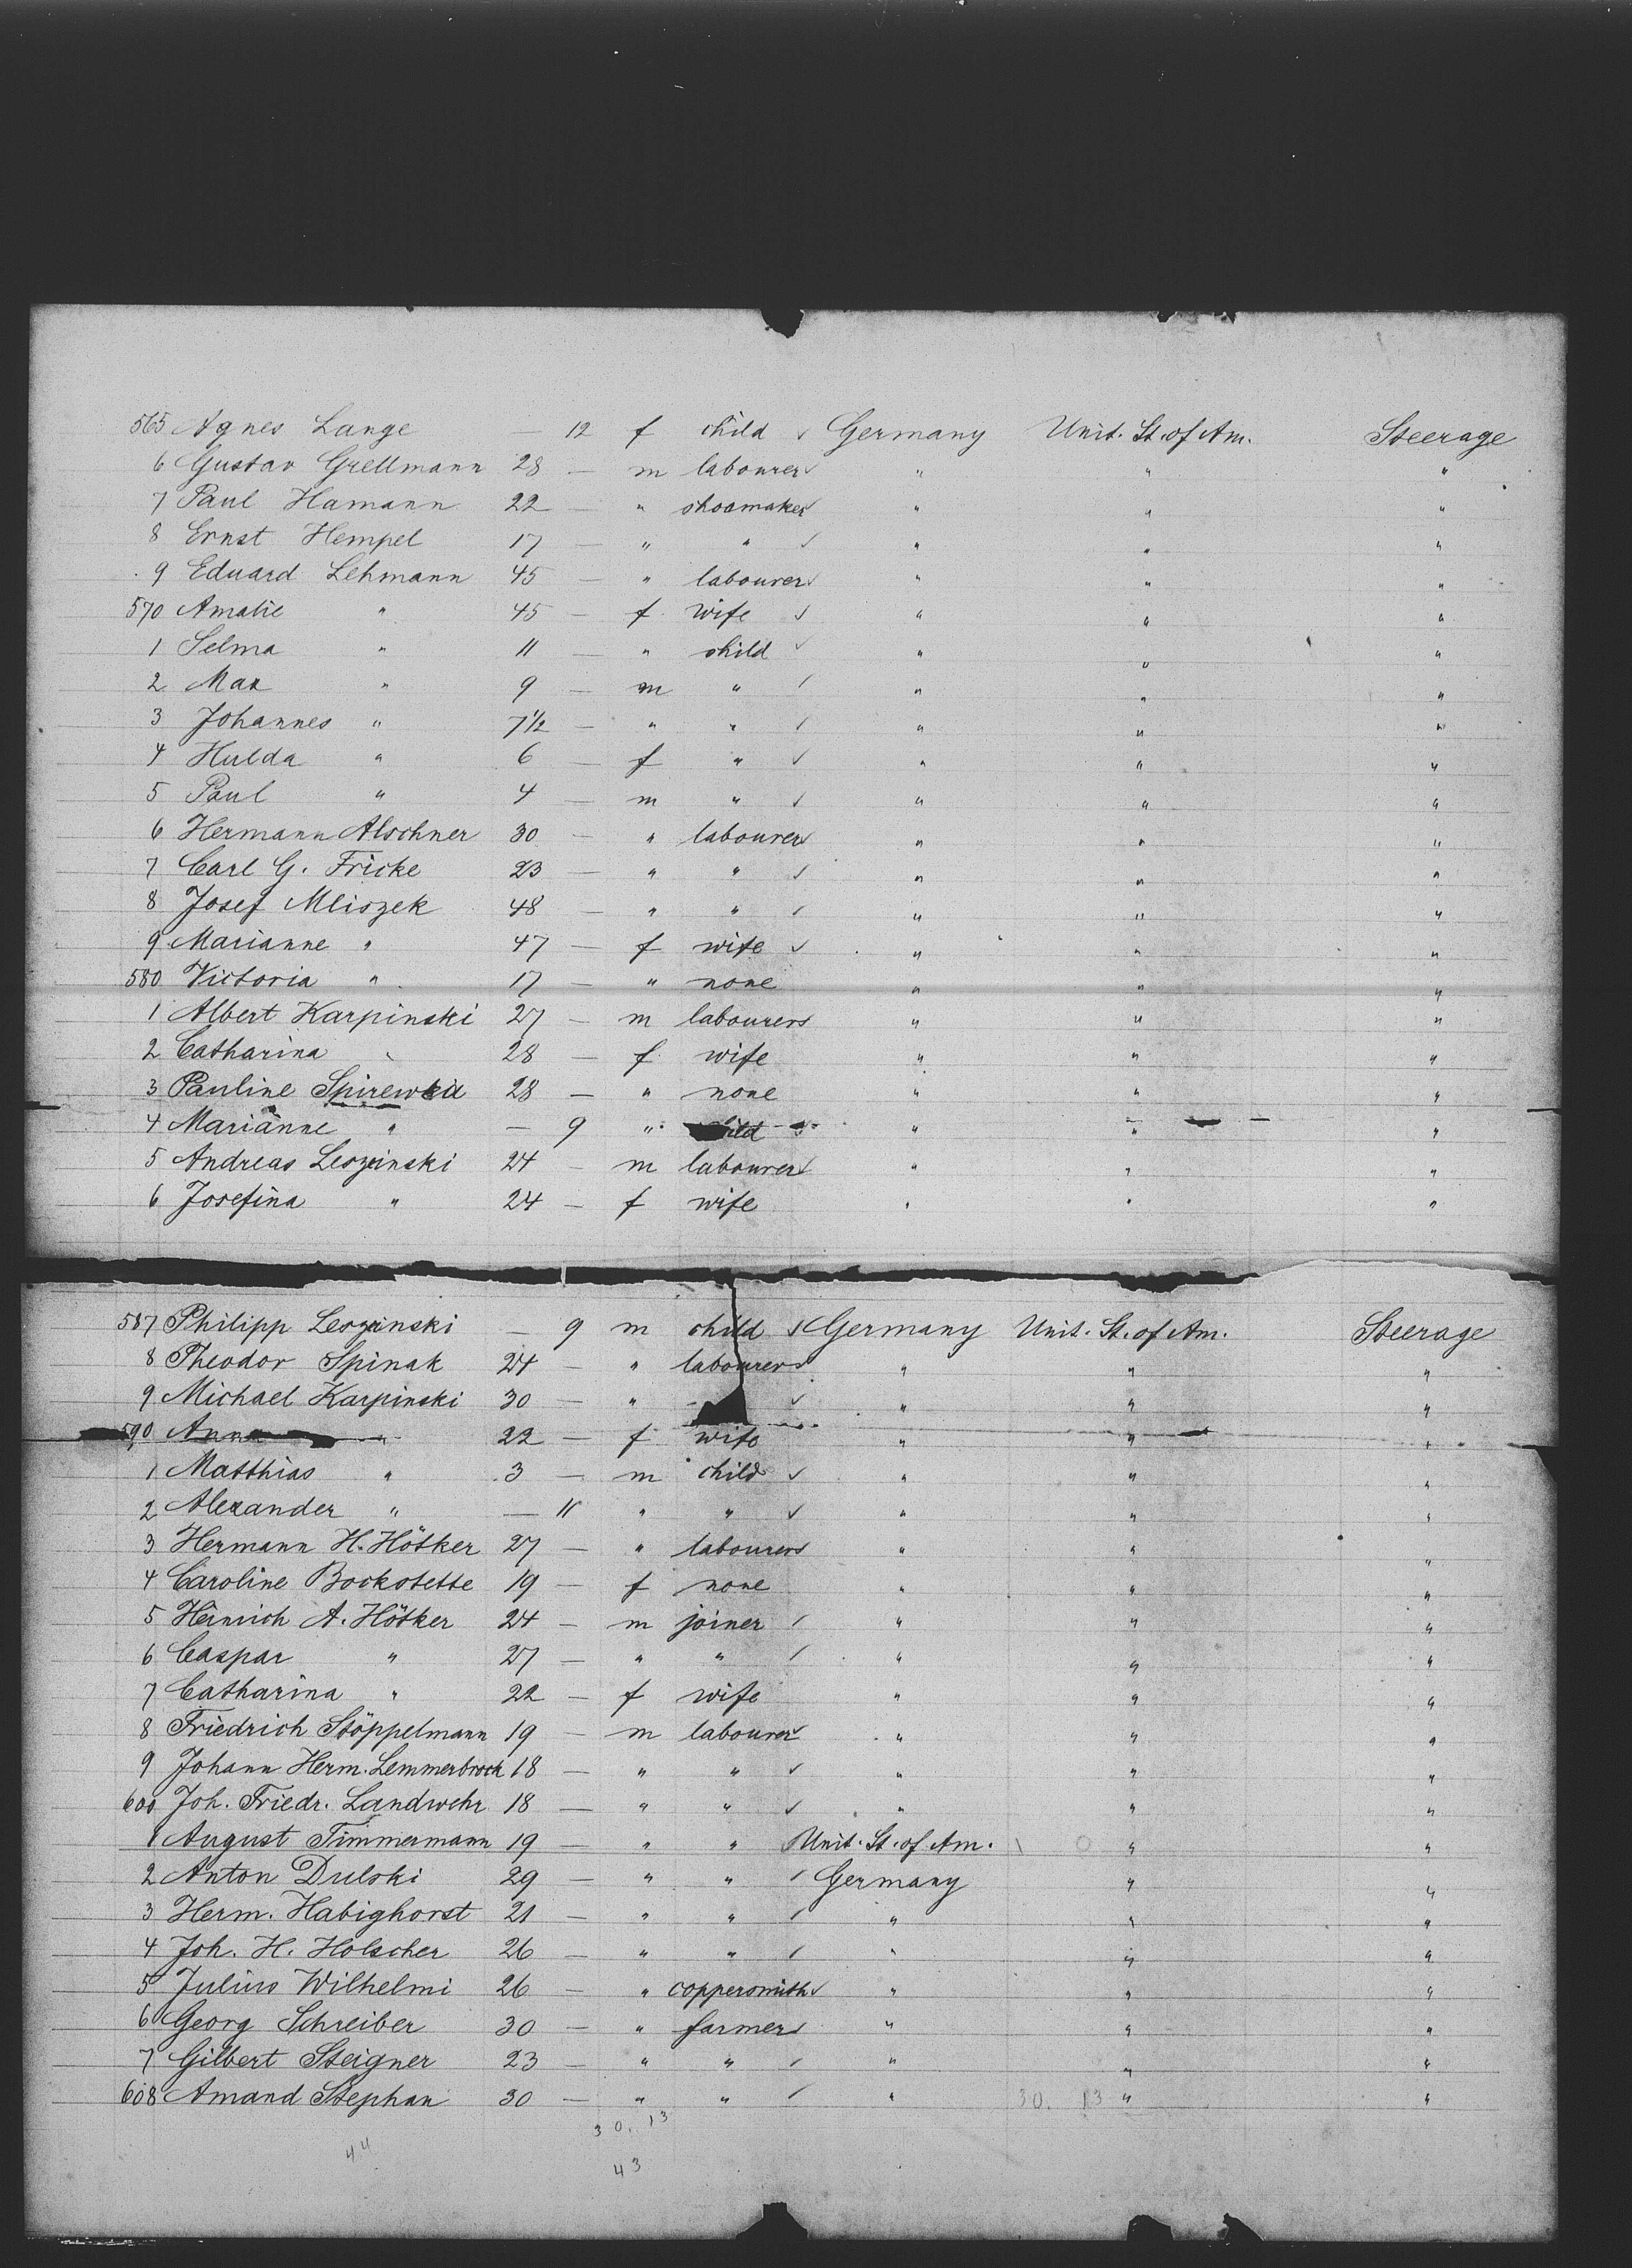 565 Agnes Lange — 12 f child ✓ Germany Unit. St. of Am. Steerage
6 Gustav Grellmann 28 — m labourer ✓ " " "
7 Paul Hamann 22 — " shoemaker ✓ " " "
8 Ernst Hempel 17 — " " ✓ " " "
9 Eduard Lehmann 45 — " labourer ✓ " " "
570 Amalie " 45 — f wife ✓ " " "
1 Selma " 11 — " child ✓ " " "
2 Max " 9 — m " ✓ " " "
3 Johannes " 7 1/2 — " " ✓ " " "
4 Hulda " 6 — f " ✓ " " "
5 Paul " 4 — m " ✓ " " "
6 Hermann Alschner 30 — " labourer ✓ " " "
7 Carl G. Fricke 23 — " " ✓ " " "
8 Josef Mliszek 48 — " " ✓ " " "
9 Marianne " 47 — f wife ✓ " " "
580 Victoria " 17 — " none " " "
1 Albert Karpinski 27 — m labourer ✓ " " "
2 Catharina " 28 — f wife " " "
3 Pauline 28 — " none " " "
4 Marianne " — 9 " child " " "
5 Andreas Leszinski 24 — m labourer ✓ " " "
6 Josefina " 24 — f wife " " "
587 Philipp Leszinski — 9 m child ✓ Germany Unit. St. of Am. Steerage
8 Theodor Spinak 24 — " labourer ✓ " " "
9 Michael Karpinski 30 — " ✓ " " "
590 Anna " 22 — f wife " " "
1 Matthias " 3 — m child ✓ " " "
2 Alexander " — 11 " " ✓ " " "
3 Hermann H. Hötker 27 — " labourer ✓ " " "
4 Caroline Bockstette 19 — f none " " "
5 Heinrich A. Hötker 24 — m joiner ✓ " " "
6 Caspar " 27 — " " ✓ " " "
7 Catharina " 22 — f wife " " "
8 Friedrich Stöppelmann 19 — m labourer ✓ " " "
9 Johann Herm. Lemmerbrock 18 — " " ✓ " " "
600 Joh. Friedr. Landwehr 18 — " " ✓ " " "
1 August Timmermann 19 — " " Unit. St. of Am. " "
2 Anton Dulski 29 — " " ✓ Germany " "
3 Herm. Habighorst 21 — " " ✓ " " "
4 Joh. H. Holscher 26 — " " ✓ " " "
5 Julius Wilhelmi 26 — " coppersmith ✓ " " "
6 Georg Schreiber 30 — " farmer ✓ " " "
7 Gilbert Steigner 23 — " " ✓ " " "
608 Amand Stephan 30 — " " ✓ " 30. 13 " "
30. 13
44
43